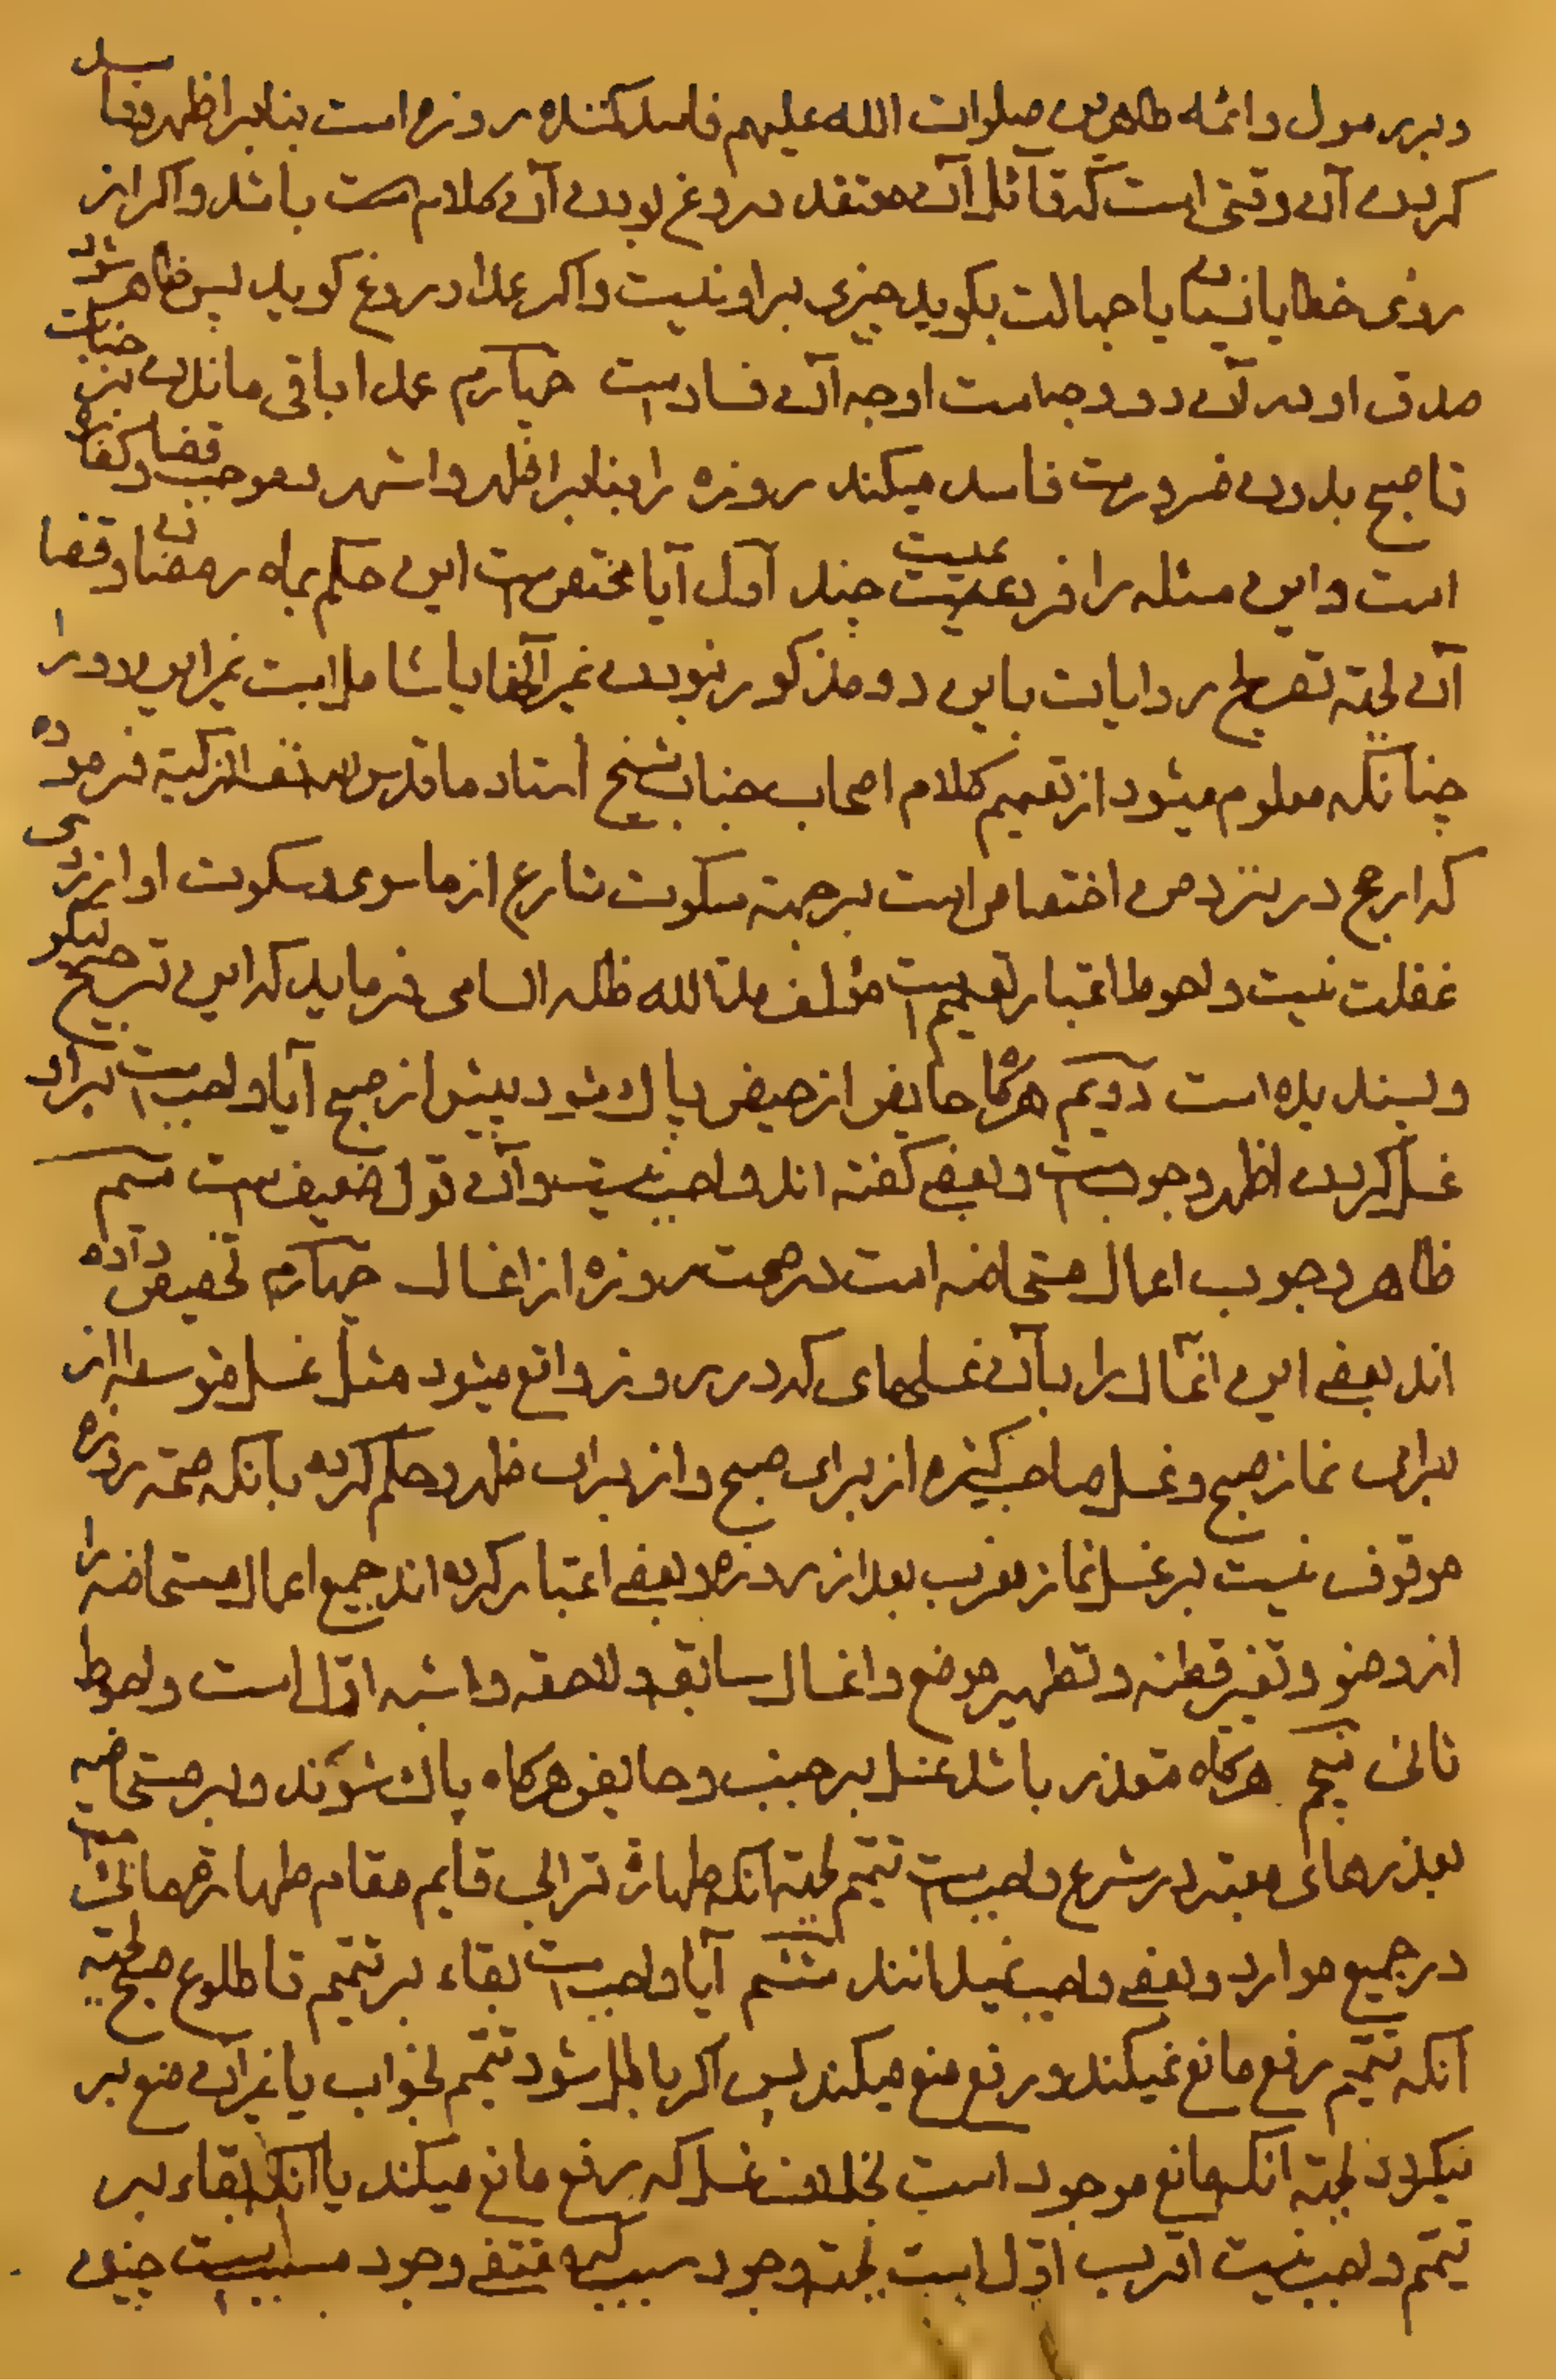 و بر رسول و ائمه طاهرین صلوات الله علیهم فاسد کننده روزه است بنابر اظهر و فاسد
کردن آن وقتی است که قائل آن معتقد دروغ بودن آن کلام است باشد و اکر از
روی خطا یا نسیان یا جهالت بکوید چیزی بر او نیست و اکر عمدا دروغ کوید پس ظاهر شود
صدق او در آن دو وجه است اوجه آن فساد است چهارم عمدا باقی ماندن بر جنابت
تا صبح بدون ضرورت فاسد میکند روزه را بنابر اظهر و اشهر و موجب قضا و کفاره
است و این مسئله را فرعیست چند اول آیا مختص است این حکم بماه رمضان و قضا
آن لجهة تصریح روایات باین دو مذکور نبودن غیر آنها یا شامل است غیر این دو را
چنانکه معلوم میشود از تعمیم کلام اصحاب جناب شیخ استاد ما قدس الله نفسه الزکیة فرموده
که ارجح در نزد من اختصاص است بر جهة سکوت شارع از ماسوی و سکوت او از روی
غفلت نیست و احوط اعتبار تعمیم است مؤلف مد الله ظله السامی فرماید که این ترجیح نیکو
و پسندیده است دویم هرکاه حایض از حیض پاک شود پیش از صبح آیا واجب است بر او
غسل کردن اظهر وجوبست و بعضی کفته اند واجب نیست و آن قول ضعیف است سیم
ظاهر وجوب اعمال مستحاضه است در صحت روزه از اغسال چهارم تخصیص داده
اند بعضی این اغسال را بآن غسلهای که در روز واقع میشود مثل غسل متوسطه از
برای نماز صبح و غسل صاحب کثیره از برای صبح و از برای ظهر و حکم کرده بانکه صحة روزه
موقوف نیست بر غسل نماز مغرب بعد از روزه و بعضی اعتبار کرده اند جمیع اعمال مستحاضه را
از وضو و تغیر قطنه و تطهیر موضع و اغسال سابقه و لاحقه و اشبه اول است و احوط
ثانی پنجم هرکاه متعذر باشد غسل بر جنب و حایض هرکاه پاک شوند و بر مستحاضه
بعذرهای معتبر در شرع واجب است تیمم لجهة آنکه طهارة ترابی قایم مقام طهارة مائیست
در جمیع موارد و بعضی واجب نمیدانند ششم آیا واجب است بقاء بر تیمم تا طلوع صبح لجهة
آنکه تیمم رفع مانع نمیکند و رفع منع میکند پس اکر باطل شود تیمم بخواب یا غیر آن منع بر
میکردد لجهة انکه مانع موجود است بخلاف غسل که رفع مانع میکند یا آنکه بقاء بر
تیمم واجب نیست اقرب اول است لجهة وجود سببی که مقتضی وجود مسبب است چنین